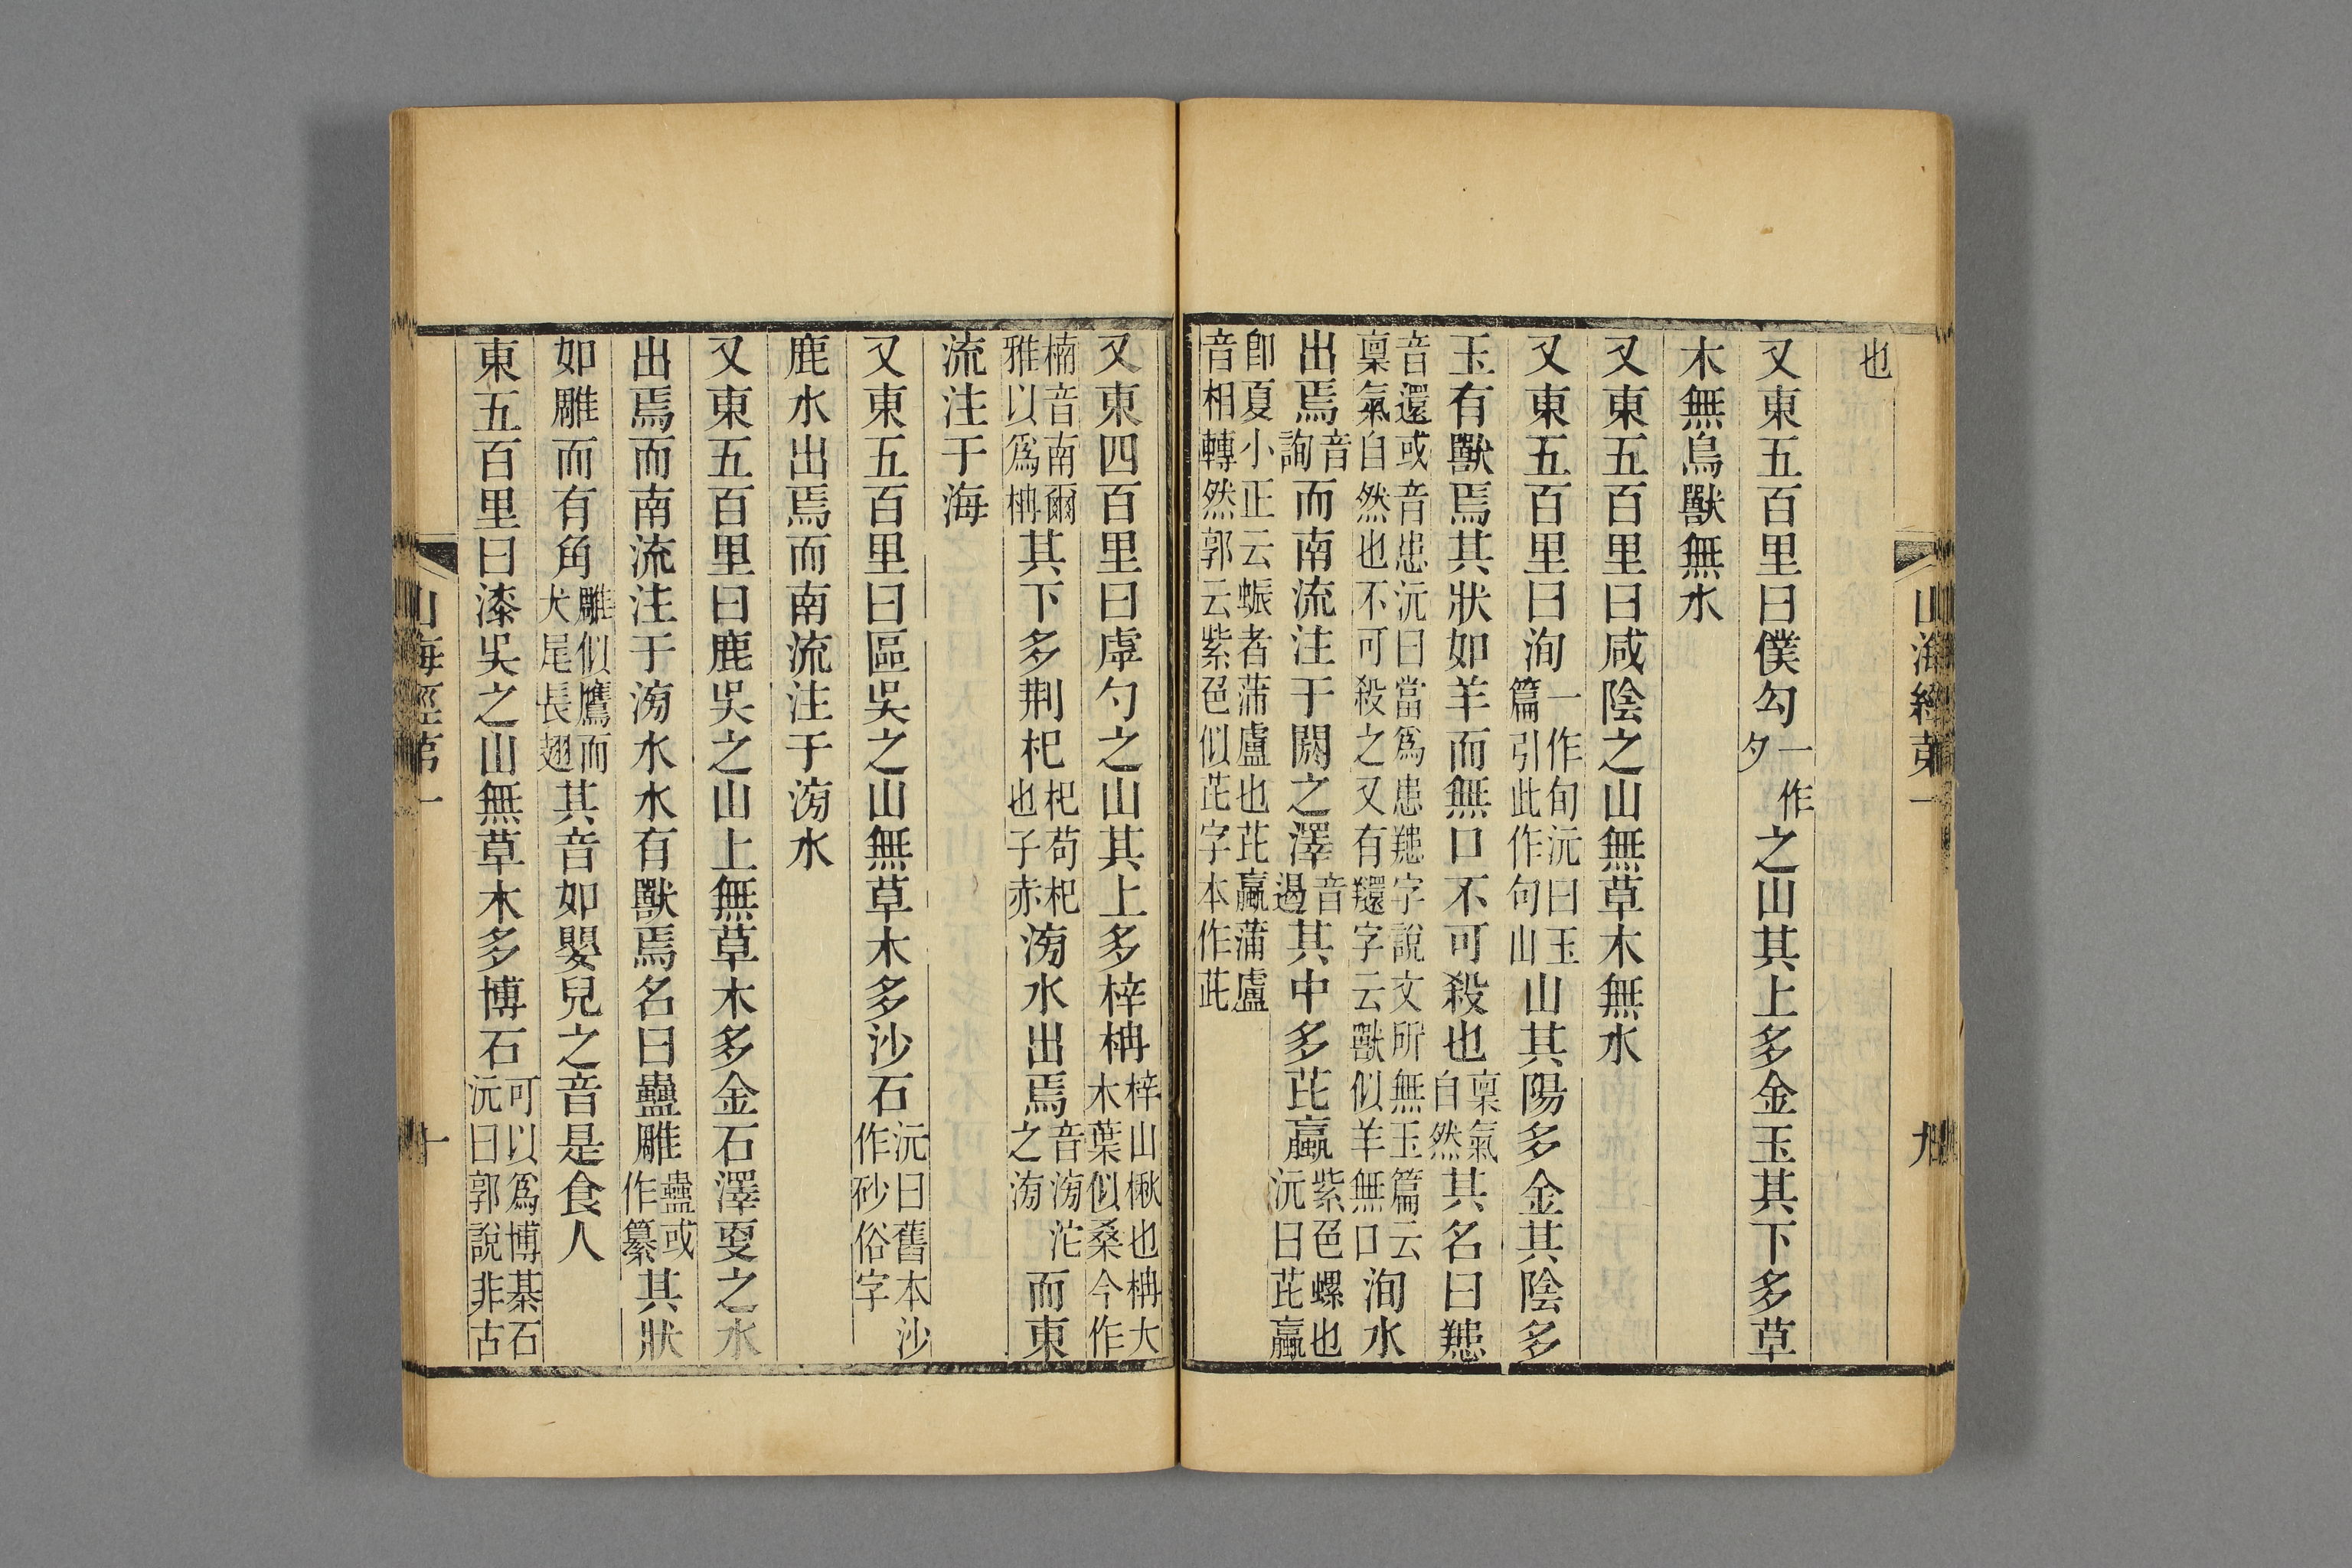 山海經第一 九
也
又東五百里曰僕勾一作夕之山其上多金玉其下多草
木無鳥獸無水
又東五百里曰咸陰之山無草木無水
又東五百里曰洵一作旬沅曰玉篇引此作句山山其陽多金其陰多
玉有獸焉其狀如羊而無口不可殺也稟氣自然其名曰䍺
音還或音患沅曰當爲患䍺字說文所無玉篇云稟氣自然也不可殺之又有羦字云獸似羊無口洵水
出焉音詢而南流注于閼之澤音遏其中多茈蠃紫色螺也沅曰茈蠃
卽夏小正云蜄者蒲盧也茈蠃蒲盧音相轉然郭云紫色似茈字本作茈
又東四百里曰虖勺之山其上多梓枏梓山楸也枏大木葉似桑今作
楠音南爾雅以爲枏其下多荆杞杞苟杞也子赤滂水出焉音滂沱之滂而東
流注于海
又東五百里曰區吳之山無草木多沙石沅曰舊本沙作砂俗字
鹿水出焉而南流注于滂水
又東五百里曰鹿吳之山上無草木多金石澤更之水
出焉而南流注于滂水水有獸焉名曰蠱雕蠱或作纂其狀
如雕而有角雕似鷹而大尾長翅其音如嬰兒之音是食人
東五百里曰漆吳之山無草木多博石可以爲博棊石沅曰郭說非古
山海經第一 十